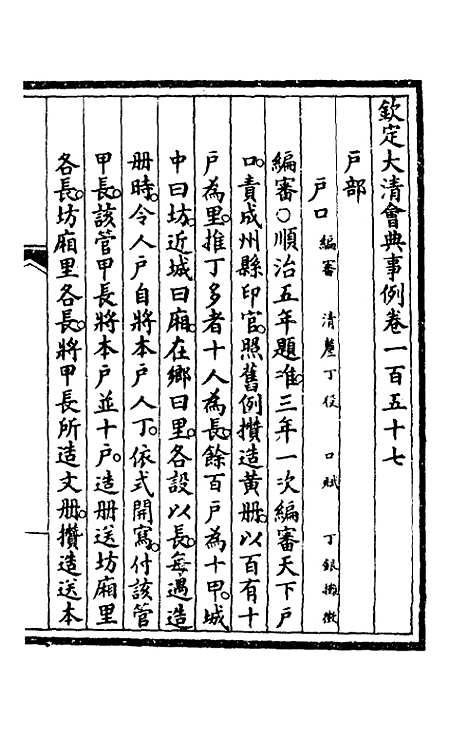 欽定大清會典事例卷一百五十七
戶部
戶口 編審 清釐丁役 口賦 丁銀攤徵
編審○順治五年題准三年一次編審天下戶
口責成州縣印官照舊例攢造黃冊以百有十
戶為里推丁多者十人為長餘百戶為十甲城
中曰坊近城曰廂在鄉曰里各設以長每遇造
冊時令人戶自將本戶人丁依式開寫付該管
甲長該管甲長將本戶並十戶造冊送坊廂里
各長坊廂里各長將甲長所造文冊攢造送本